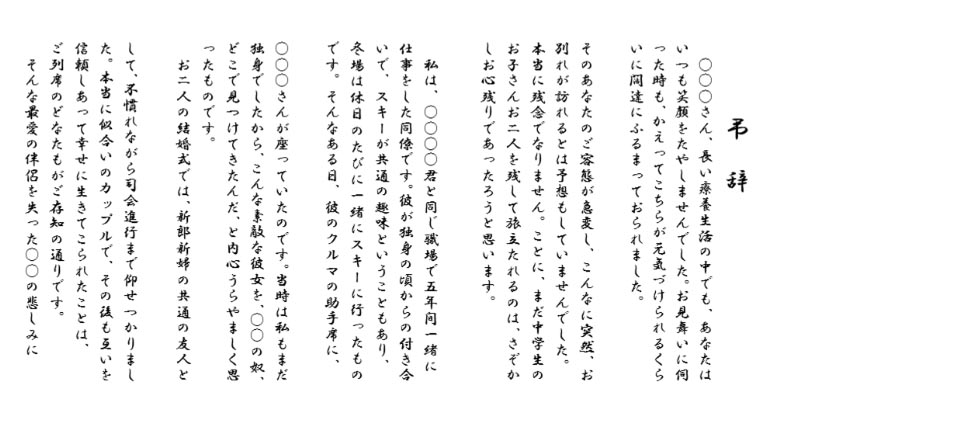 弔辞
○○○さん、長い療養生活の中でも、あなたは
いつも笑顔をたやしませんでした。お見舞いに伺
った時も、かえってこちらが元気づけられるくら
いに闊達にふるまっておられました。
そのあなたのご容態が急変し、こんなに突然、お
別れが訪れるとは予想もしていませんでした。
本当に残念でなりません。ことに、まだ中学生の
お子さんお二人を残して旅立たれるのは、さぞか
しお心残りであったろうと思います。
私は、○○○○君と同じ職場で五年间一緒に
仕事をした同僚です。彼が独身の頃からの付き合
いで、スキーが共通の趣味ということもあり、
冬場は休日のたびに一緒にスキーに行ったもの
です。そんなある日、彼のクルマの助手席に、
○○○さんが座っていたのです。当時は私もまだ
独身でしたから、こんな素敵な彼女を、○○の奴、
どこで見つけてきたんだ、と内心うらやましく思
ったものです。
お二人の結婚式では、新郎新婦の共通の友人と
して、不慣れながら司会進行まで仰せつかりまし
た。本当に似合いのカップルで、その後も互いを
信頼しあって幸せに生きてこられたことは、
ご列席のどなたもがご存知の通りです。
そんな最愛の伴侶を失った○○の悲しみに